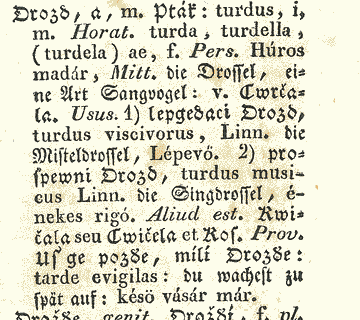 Drozd, a, m. Pták: turdus, i,
m. Horat. turda, turdella,
(turdela) ae, f. Pers. Húros
madár, Mitt. die Drossel, ei-
ne Art Sangvogel: v. Cwrča-
la. Usus. 1) lepgedaci Drozd,
turdus viscivorus, Linn. die
Misteldrossel, Lépevő. 2) pro-
spewni Drozd, turdus musi-
cus Linn. die Singdrossel, é-
nekes rigó. Aliud est. Kwi-
čala seu Cwičela et Kos. Prov.
Us ge pozďe, milí Drozďe:
tarde evigilas: du wachest zu
spät auf: késö vásár már.
Drozďe, genit. Drozďí, f. pl.